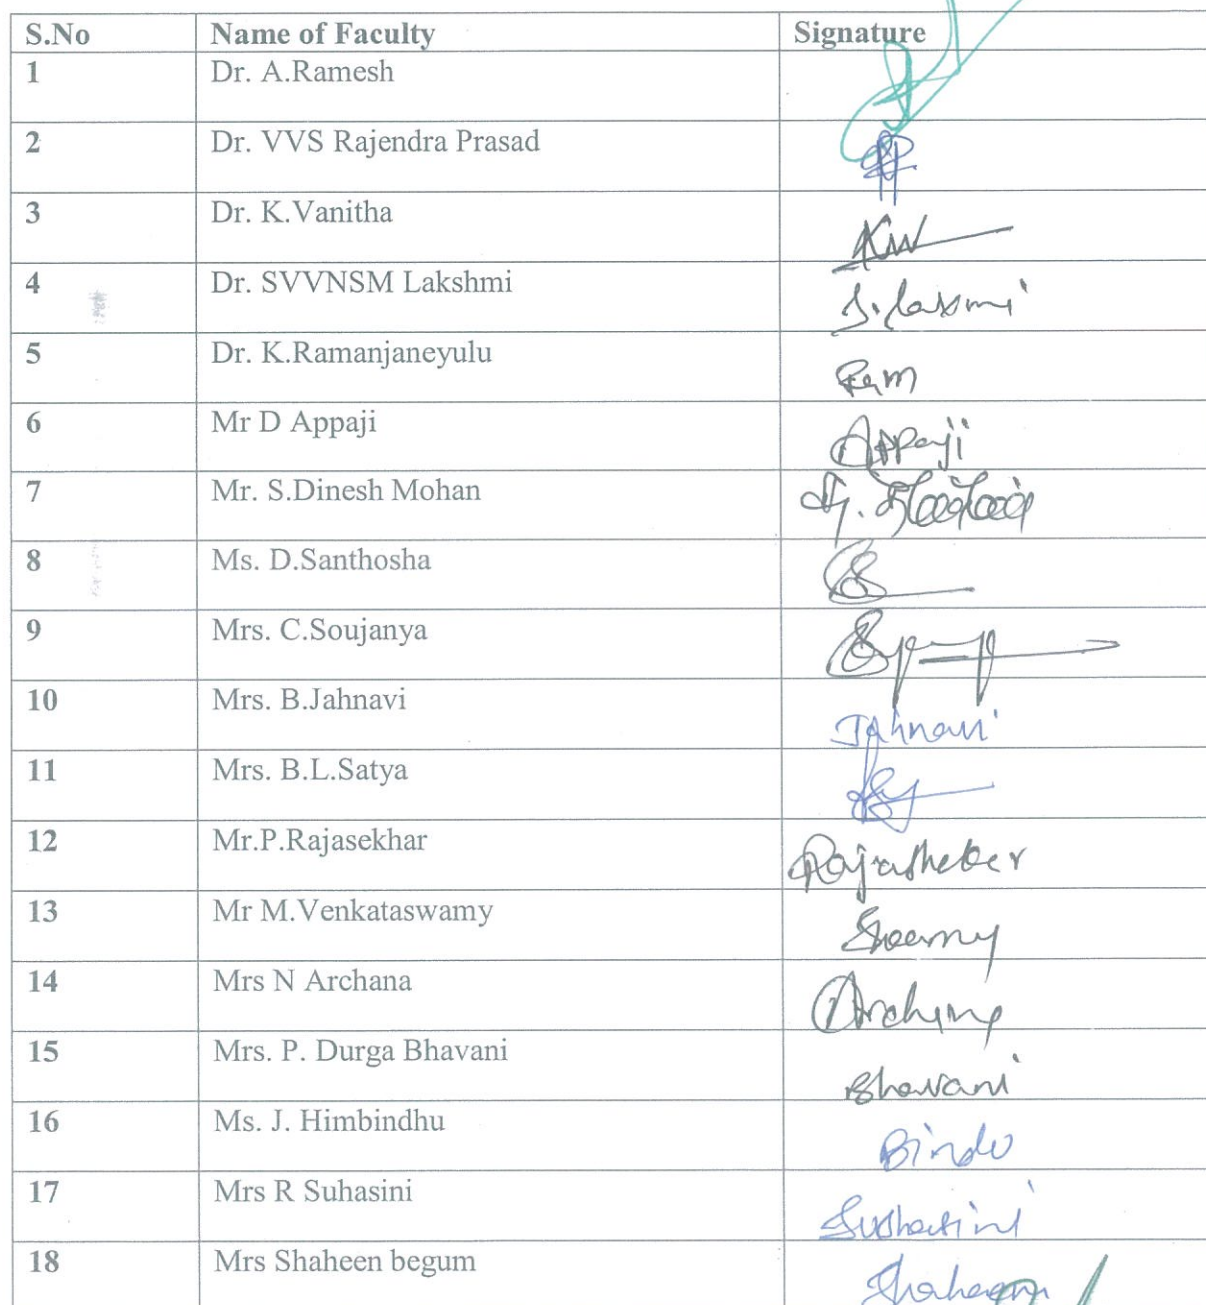 S.No Name of Faculty Signature
1 Dr. A.Ramesh
2 Dr. VVS Rajendra Prasad
3 Dr. K.Vanitha
4 Dr. SVVNSM Lakshmi S. Laxmi
5 Dr. K.Ramanjaneyulu Ram
6 Mr D Appaji Appaji
7 Mr. S.Dinesh Mohan
8 Ms. D.Santhosha
9 Mrs. C.Soujanya
10 Mrs. B.Jahnavi Jahnavi
11 Mrs. B.L.Satya
12 Mr.P.Rajasekhar Rajasheker
13 Mr M.Venkataswamy Swamy
14 Mrs N Archana Archana
15 Mrs. P. Durga Bhavani Bhavani
16 Ms. J. Himbindhu Bindu
17 Mrs R Suhasini Suhasini
18 Mrs Shaheen begum Shaheen